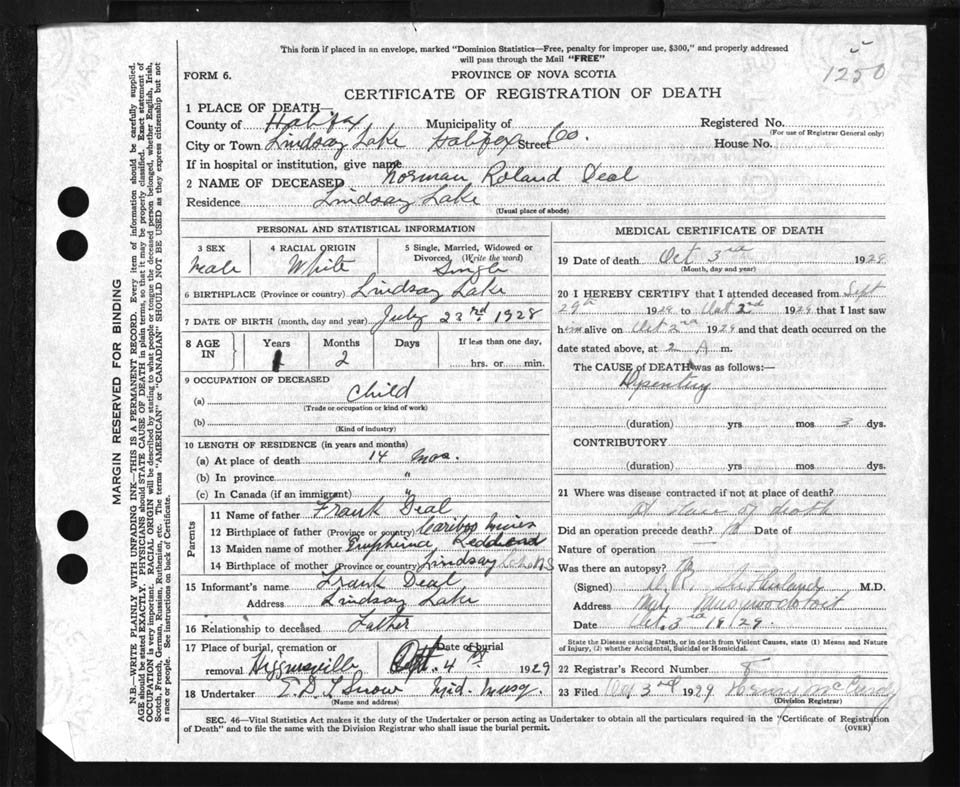 This form if placed in an envelope, marked "Dominion Statistics—Free, penalty for improper use, $300," and properly addressed
will pass through the Mail "FREE"
1250
FORM 6.
PROVINCE OF NOVA SCOTIA
CERTIFICATE OF REGISTRATION OF DEATH
1 PLACE OF DEATH—
County of Halifax Municipality of Registered No.
(For use of Registrar General only)
City or Town Lindsay Lake Halifax Co. Street House No.
If in hospital or institution, give name
2 NAME OF DECEASED Norman Roland Deal
Residence Lindsay Lake
(Usual place of abode)
PERSONAL AND STATISTICAL INFORMATION
3 SEX 4 RACIAL ORIGIN 5 Single, Married, Widowed or
Divorced (Write the word)
Male White Single
6 BIRTHPLACE (Province or country) Lindsay Lake
7 DATE OF BIRTH (month, day and year) July 23rd 1928
8 AGE IN Years Months Days If less than one day,
1 2 hrs. or min.
9 OCCUPATION OF DECEASED
(a) Child
(Trade or occupation or kind of work)
(b)
(Kind of industry)
10 LENGTH OF RESIDENCE (in years and months)
(a) At place of death 14 mos.
(b) In province "
(c) In Canada (if an immigrant) "
Parents
11 Name of father Frank Deal
12 Birthplace of father (Province or country) Cariboo Mines
13 Maiden name of mother
14 Birthplace of mother (Province or country) Lindsay
15 Informant's name Frank Deal
Address Lindsay Lake
16 Relationship to deceased Father
17 Place of burial, cremation or Date of burial
removal Higginsville Oct. 4th 1929
18 Undertaker Snow Mid. Musq.
(Name and address)
MEDICAL CERTIFICATE OF DEATH
19 Date of death Oct 3rd 1929
(Month, day and year)
20 I HEREBY CERTIFY that I attended deceased from Sept
29th 1929 to Oct 2nd 1929 that I last saw
him alive on Oct 2nd 1929 and that death occurred on the
date stated above, at 2 A m.
The CAUSE OF DEATH was as follows:—
Dysentery
(duration) yrs mos 3 dys.
CONTRIBUTORY
(duration) yrs mos dys.
21 Where was disease contracted if not at place of death?
At place of death
Did an operation precede death? Date of
Nature of operation —
Was there an autopsy?
(Signed) M.D.
Address Mid. Musquodoboit
Date Oct. 3rd 1929.
State the Disease causing Death, or in death from Violent Causes, state (1) Means and Nature
of Injury, (2) whether Accidental, Suicidal or Homicidal.
22 Registrar's Record Number
23 Filed Oct 3rd 1929 Henry McCurdy
(Division Registrar)
SEC. 46—Vital Statistics Act makes it the duty of the Undertaker or person acting as Undertaker to obtain all the particulars required in the "Certificate of Registration
of Death" and to file the same with the Division Registrar who shall issue the burial permit.
(OVER)
MARGIN RESERVED FOR BINDING
N.B.—WRITE PLAINLY WITH UNFADING INK—THIS IS A PERMANENT RECORD. Every item of information should be carefully supplied.
AGE should be stated EXACTLY. PHYSICIANS should STATE CAUSE OF DEATH in plain terms, so that it may be properly classified. Exact statement of
OCCUPATION is very important. RACIAL ORIGIN will be described by stating to what people or tongue the deceased person belonged, whether English, Irish,
Scotch, French, German, Russian, Ruthenian, etc. The terms "AMERICAN" or "CANADIAN" SHOULD NOT BE USED as they express citizenship but not
a race or people. See instructions on back of Certificate.